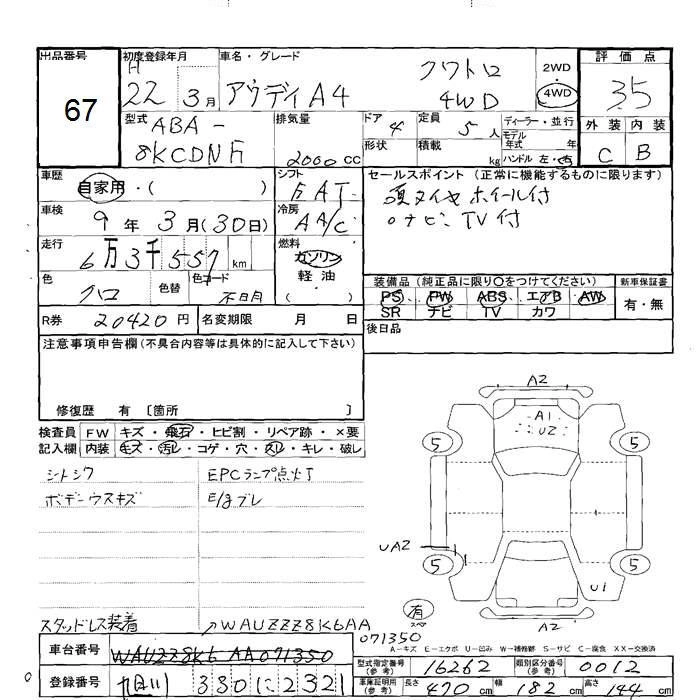 出品番号 初度登録年月 車名・グレード 評価点
67 H 22 3月 アウディA4 クワトロ 4WD 2WD 4WD 3.5
型式 ABA- 排気量 ドア 4 定員 5人 ディーラー・並行 外装 内装
8KCDNF 2000cc 形状 積載 kg モデル年式 年 ハンドル 左・右 C B
車歴 自家用・( ) シフト FAT セールスポイント (正常に機能するものに限ります)
車検 9年3月(30日) 冷房 AA/C 夏タイヤホイール付
走行 6万3千557km 燃料 ガソリン 軽油 ( ) ・ナビ・TV付
色 クロ 色替 色コード 不明 装備品 (純正品に限り○をつけてください) 新車保証書
PS PW ABS エアB AW 有・無
R券 20420円 名変期限 月 日 SR ナビ TV カワ
注意事項申告欄(不具合内容等は具体的に記入して下さい) 後日品
修復歴 有 〔箇所 〕
検査員 FW キズ・飛石・ヒビ割・リペア跡・×要
記入欄 内装 キズ・汚レ・コゲ・穴・スレ・キレ・破レ
シートシワ EPCランプ点灯
ボデーウスキズ E/gブレ
A2
A1
U2
5 5
UA2
5 5
U1
有
スペ
A2
スタッドレス装着 WAUZZZ8K6AA
071350
A-キズ E-エクボ U-凹み W-補修跡 S-サビ C-腐食 XX-交換済
車台番号 WAUZZ8K6AA071350 型式指定番号(参考) 16262 類別区分番号(参考) 0012
登録番号 旭川 330 に 2321 車庫証明用(参考) 長さ 470cm 幅 182cm 高さ 144cm